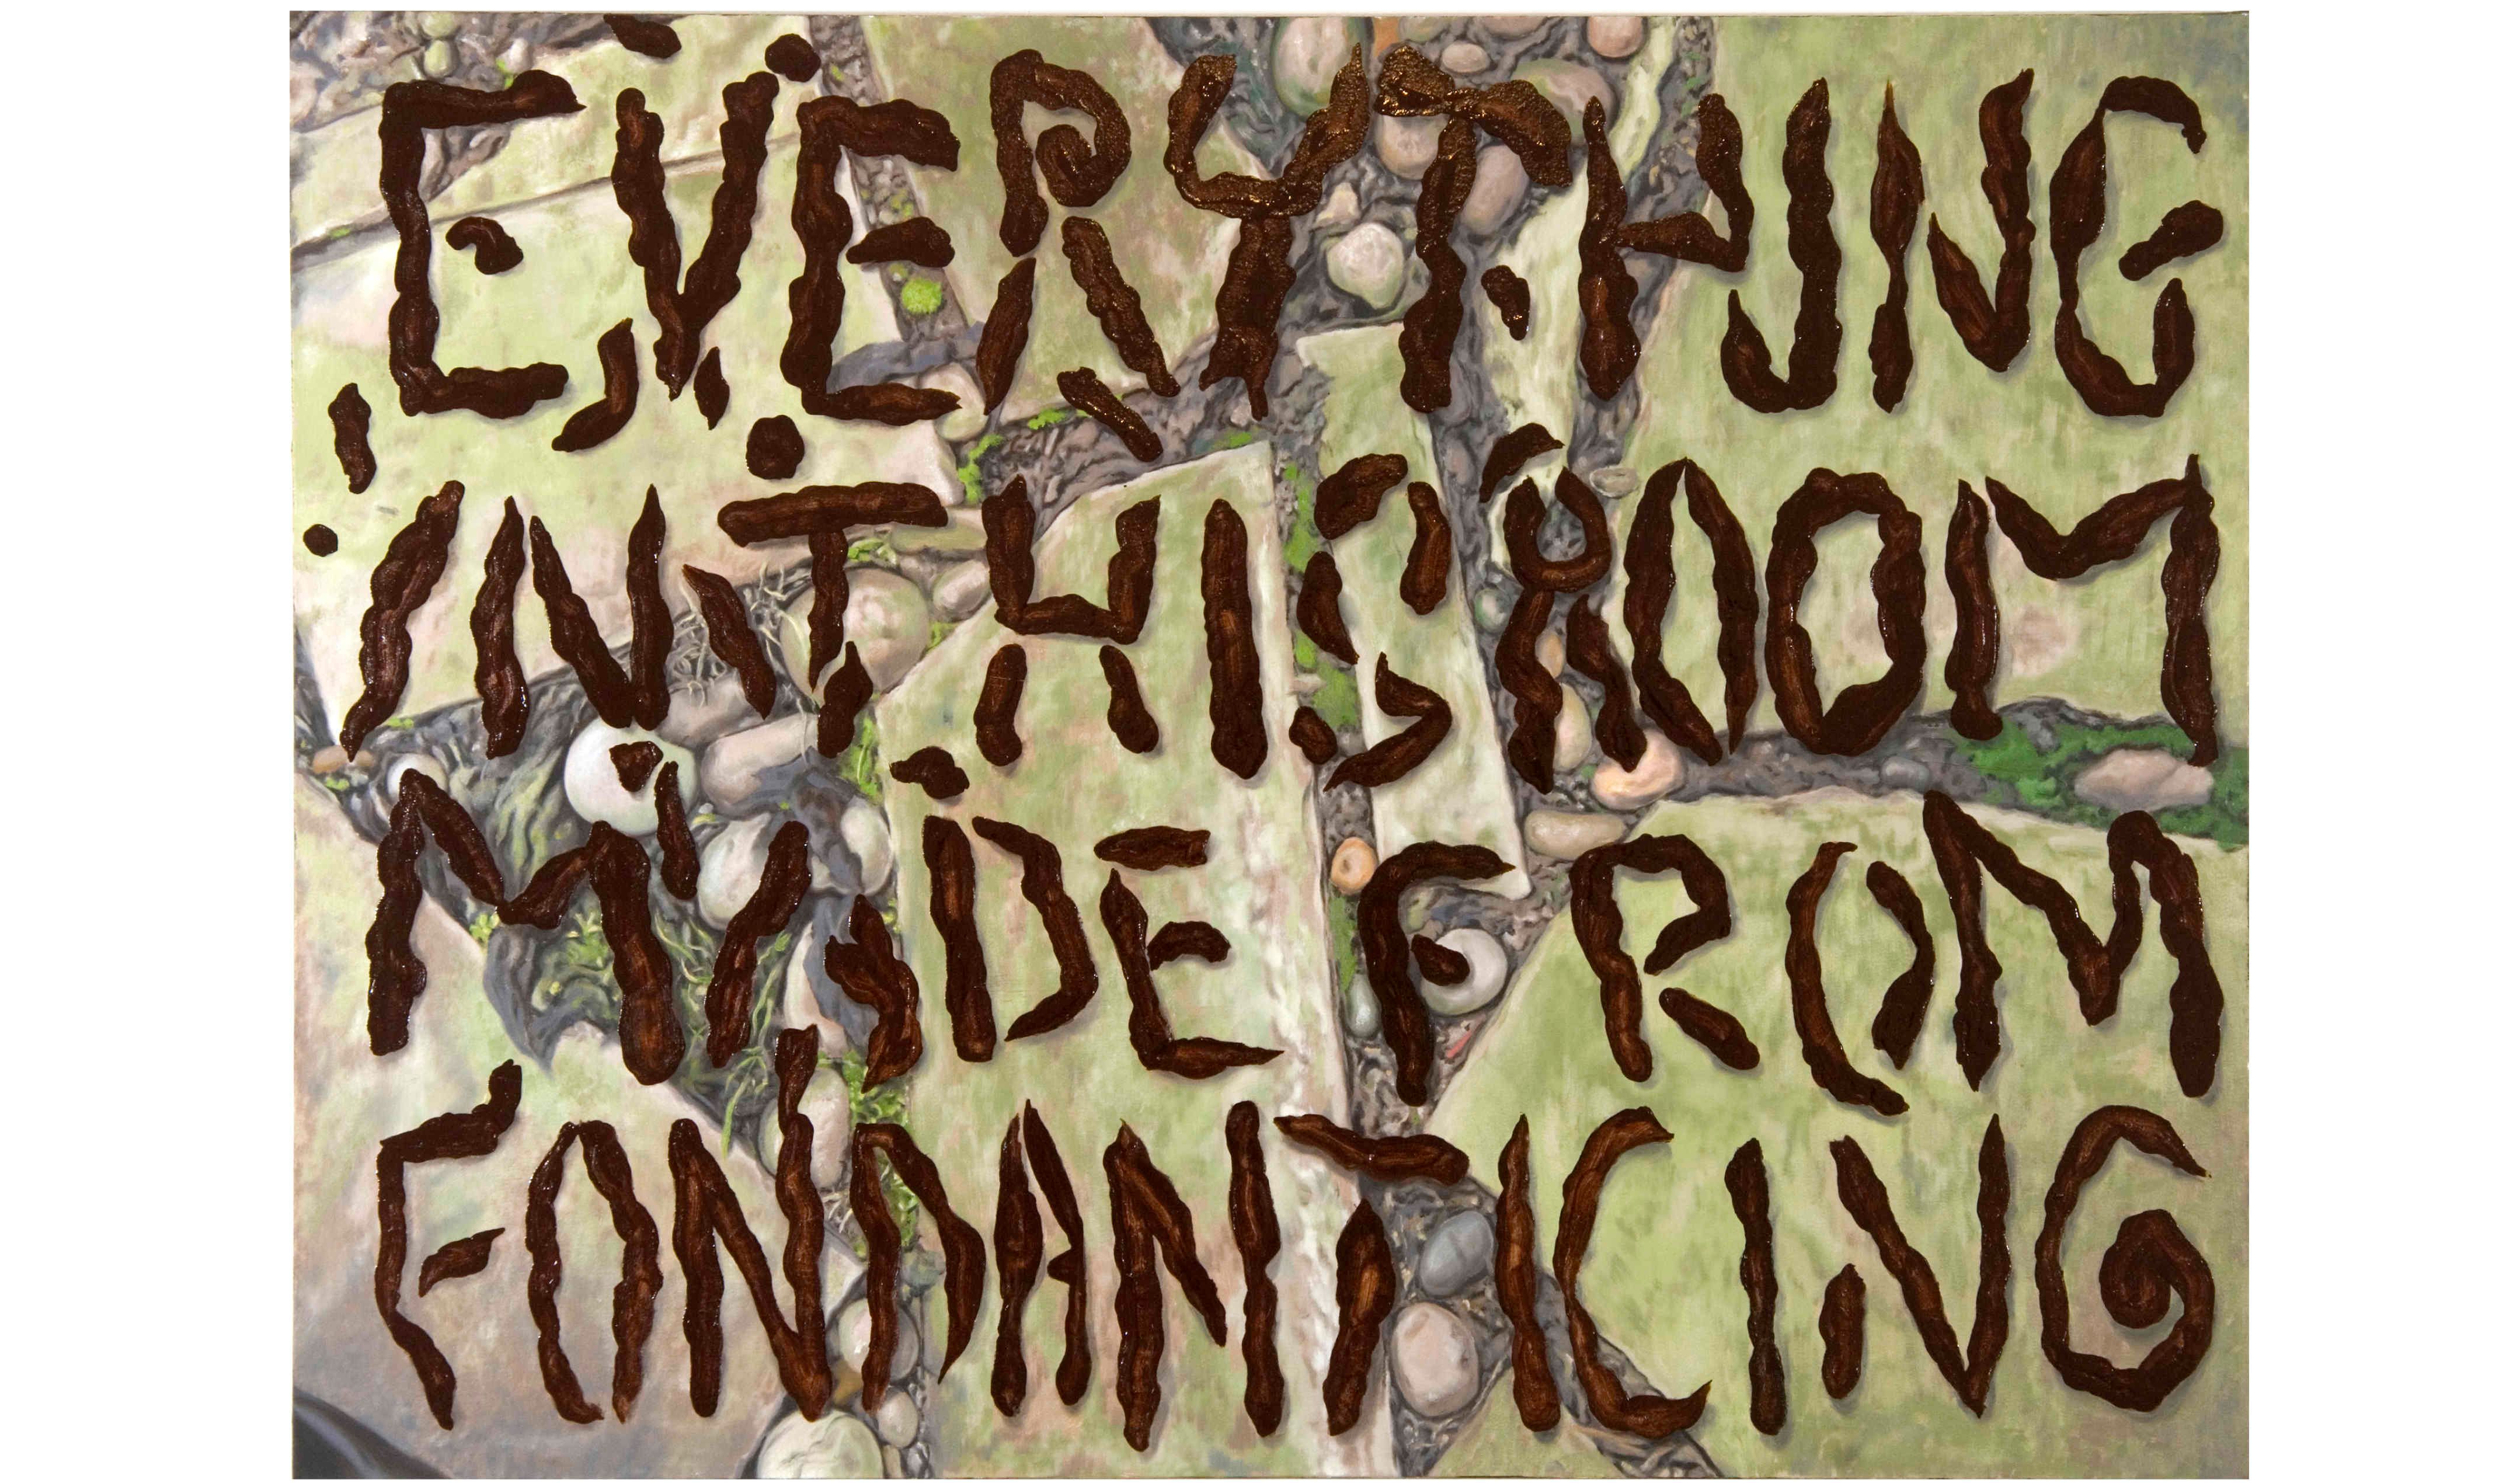 EVERYTHING
IN THIS ROOM
MADE FROM
FONDANT ICING